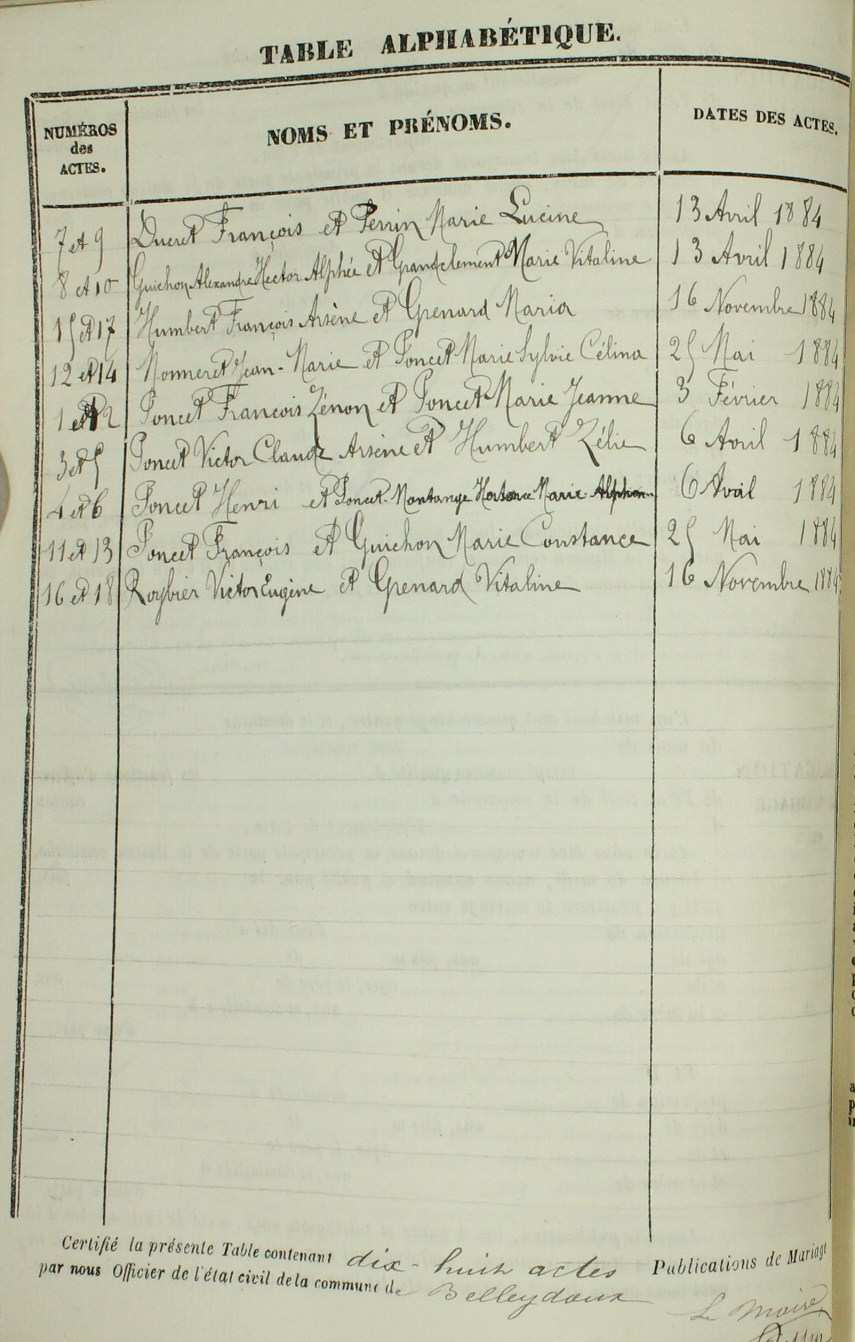 TABLE ALPHABÉTIQUE.
NUMÉROS des ACTES. NOMS ET PRÉNOMS. DATES DES ACTES.
7 et 9 Ducret François et Perrin Marie Lucine 13 Avril 1884
8 et 10 Guichon Alexandre Hector Alphée et Grandclement Marie Vitaline 13 Avril 1884
15 et 17 Humbert François Arsène et Grenard Maria 16 Novembre 1884
12 et 14 Monneret Jean-Marie et Poncet Marie Sylvie Célina 25 Mai 1884
1 et 2 Poncet François Zénon et Poncet Marie Jeanne 3 Février 1884
3 et 5 Poncet Victor Claude Arsène et Humbert Zélie 6 Avril 1884
4 et 6 Poncet Henri et Poncet-Montange Hortence Marie Alphon 6 Avril 1884
11 et 13 Poncet François et Guichon Marie Constance 25 Mai 1884
16 et 18 Roybier Victor Eugène et Grenard Vitaline 16 Novembre 1884
Certifié la présente Table contenant dix-huit actes Publications de Mariage
par nous Officier de l'état civil de la commune de Belleydoux
Le Maire